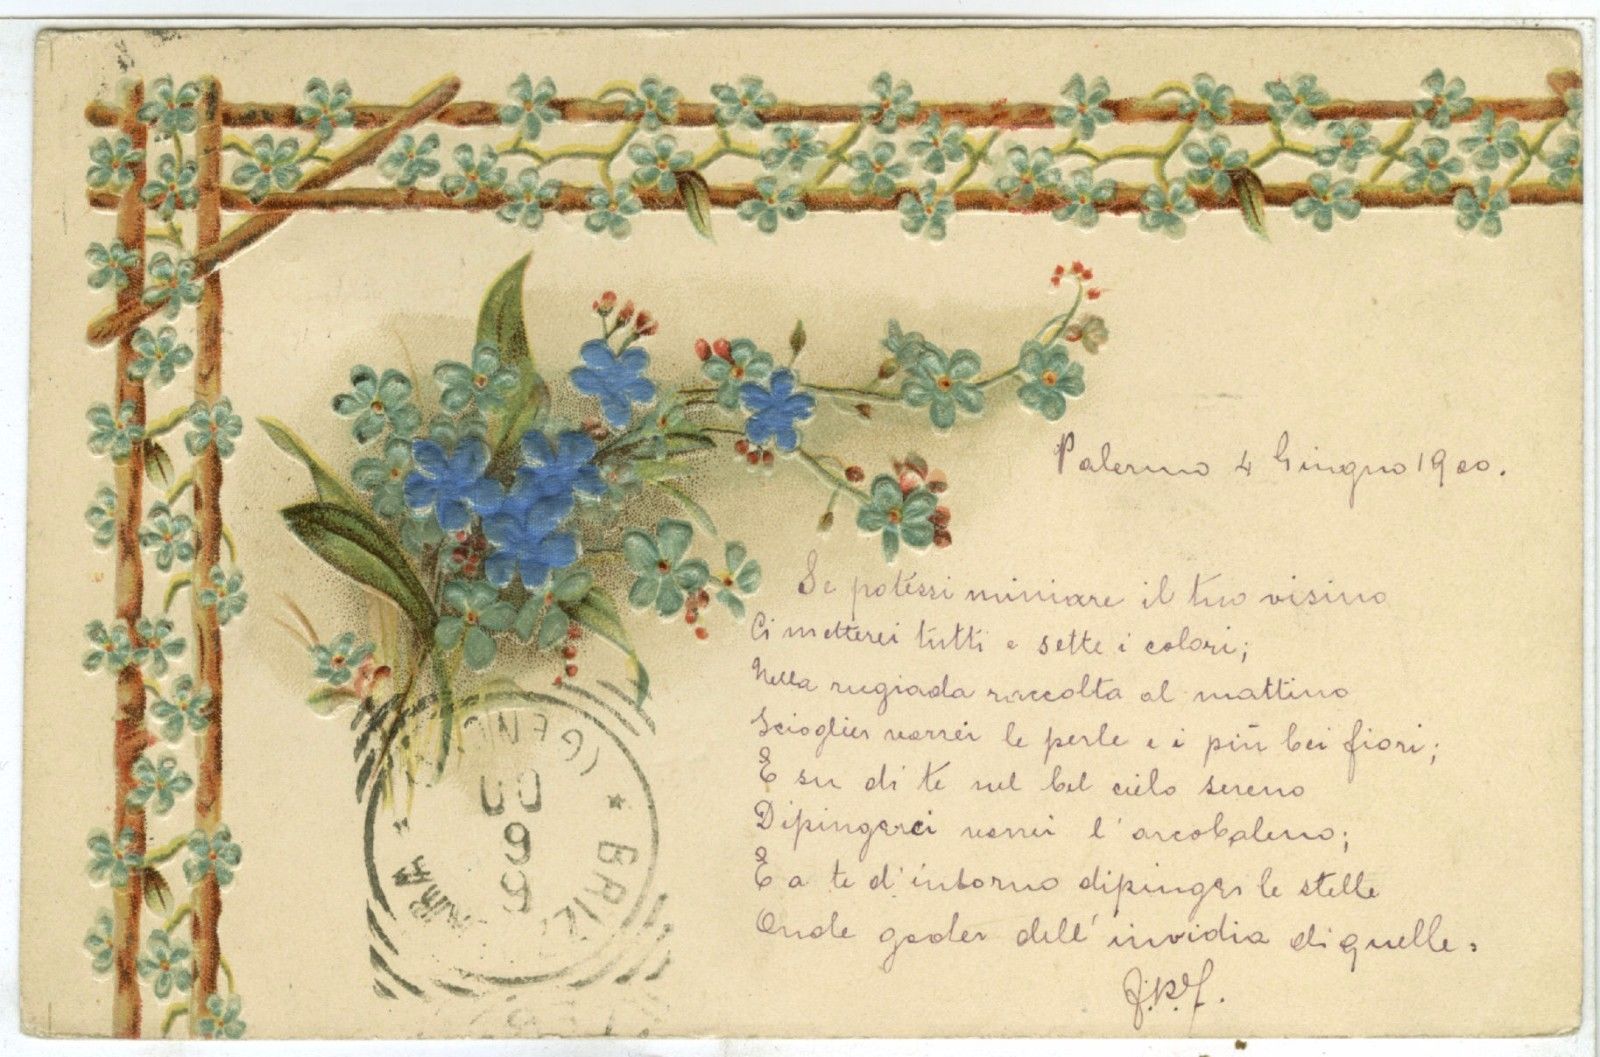 Palermo 4 Giugno 1900.
Se potessi miniare il tuo visino
Ci metterei tutti e sette i colori;
Nella rugiada raccolta al mattino
Scioglier vorrei le perle e i più bei fiori;
E su di te nel bel cielo sereno
Dipingerci vorrei l'arcobaleno;
E a te d'intorno dipinger le stelle
Onde goder dell'invidia di quelle.
(GENO
* BRIZ
00
6
5